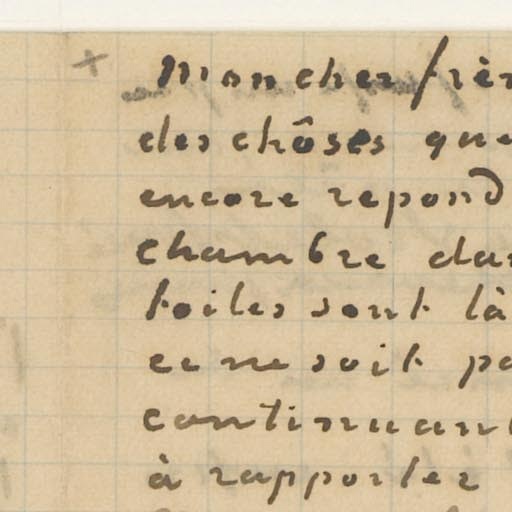 Mon cher frèr
des chôses que
encore repond
chambre dan
toiles sont là
ce ne soit pa
continuant
à rapporter